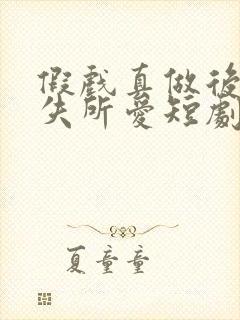 假戲真做後
失所愛短劇
夏童童